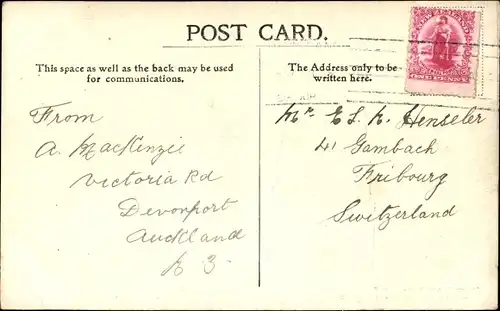 POST CARD.
This space as well as the back may be used
for communications.
The Address only to be
written here.
NEW ZEALAND
ONE PENNY
From
A. MacKenzie
Victoria Rd
Devonport
Auckland
N 3.
Mr. E. L. K. Henseler
41 Gambach
Fribourg
Switzerland